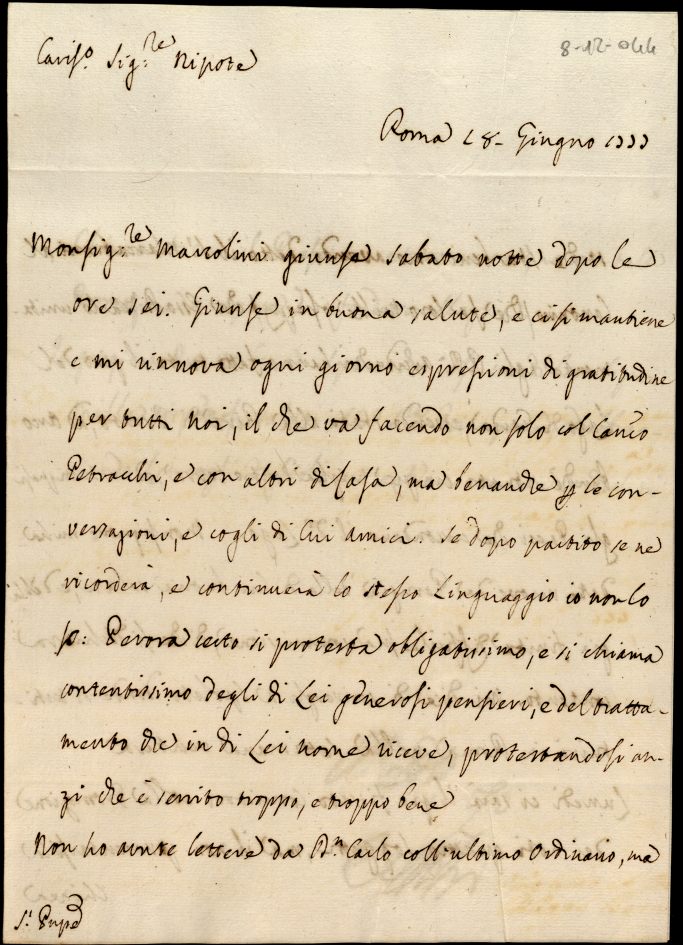 8-12-044
Cariſ.º Sig.re Nipote
Roma 18 - Giugno 1777
Monſig.re Marcolini giunſe sabato notte dopo le
ore sei. Giunſe in buona salute, e ci ſi mantiene
e mi rinnova ogni giorno eſpreſſioni di gratitudine
per tutti noi, il che va facendo non ſolo col Can.co
Petracchi, e con altri di Caſa, ma benanche p le con-
versazioni, e cogli di Lui amici. Se dopo partito se ne
ricorderà, e continuerà lo steſſo Linguaggio io non lo
ſò: Perora certo si proteſta obligatissimo, e si chiama
contentissimo degli di Lei generoſi penſieri, e del tratta-
mento che in di Lei nome riceve, protestandoſi an-
zi che è servito troppo, e troppo bene
Non ho avute lettere da D.n Carlo coll'ultimo Ordinario, ma